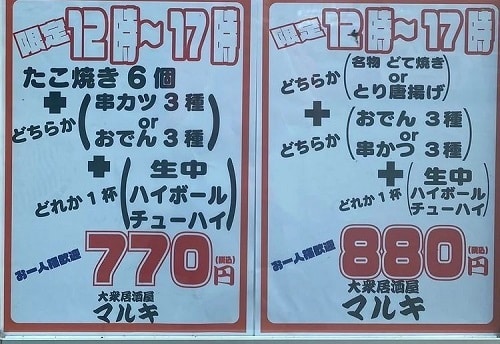 限定 12時~17時
たこ焼き 6個
+
どちらか
串カツ 3種
or
おでん 3種
+
どれか1杯
生中
ハイボール
チューハイ
お一人様歓迎
770円
(税込)
大衆居酒屋
マルキ
限定 12時~17時
どちらか
名物 どて焼き
or
とり唐揚げ
+
どちらか
おでん 3種
or
串かつ 3種
+
どれか1杯
生中
ハイボール
チューハイ
お一人様歓迎
880円
(税込)
大衆居酒屋
マルキ